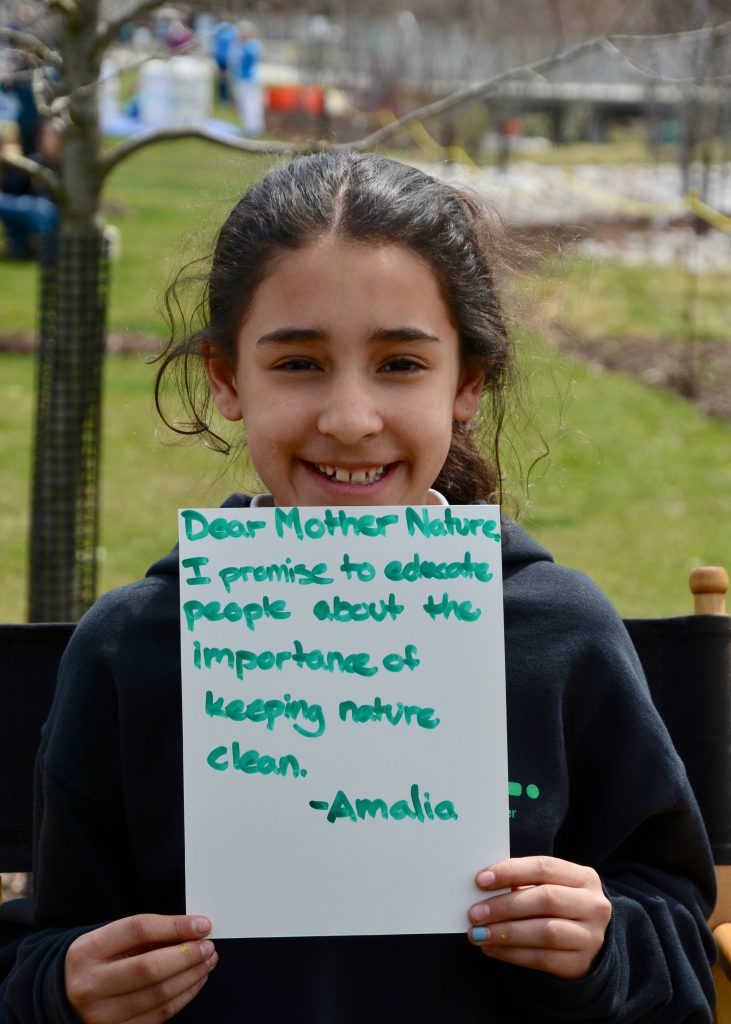 Dear Mother Nature,
I promise to educate
people about the
importance of
keeping nature
clean.
-Amalia
er